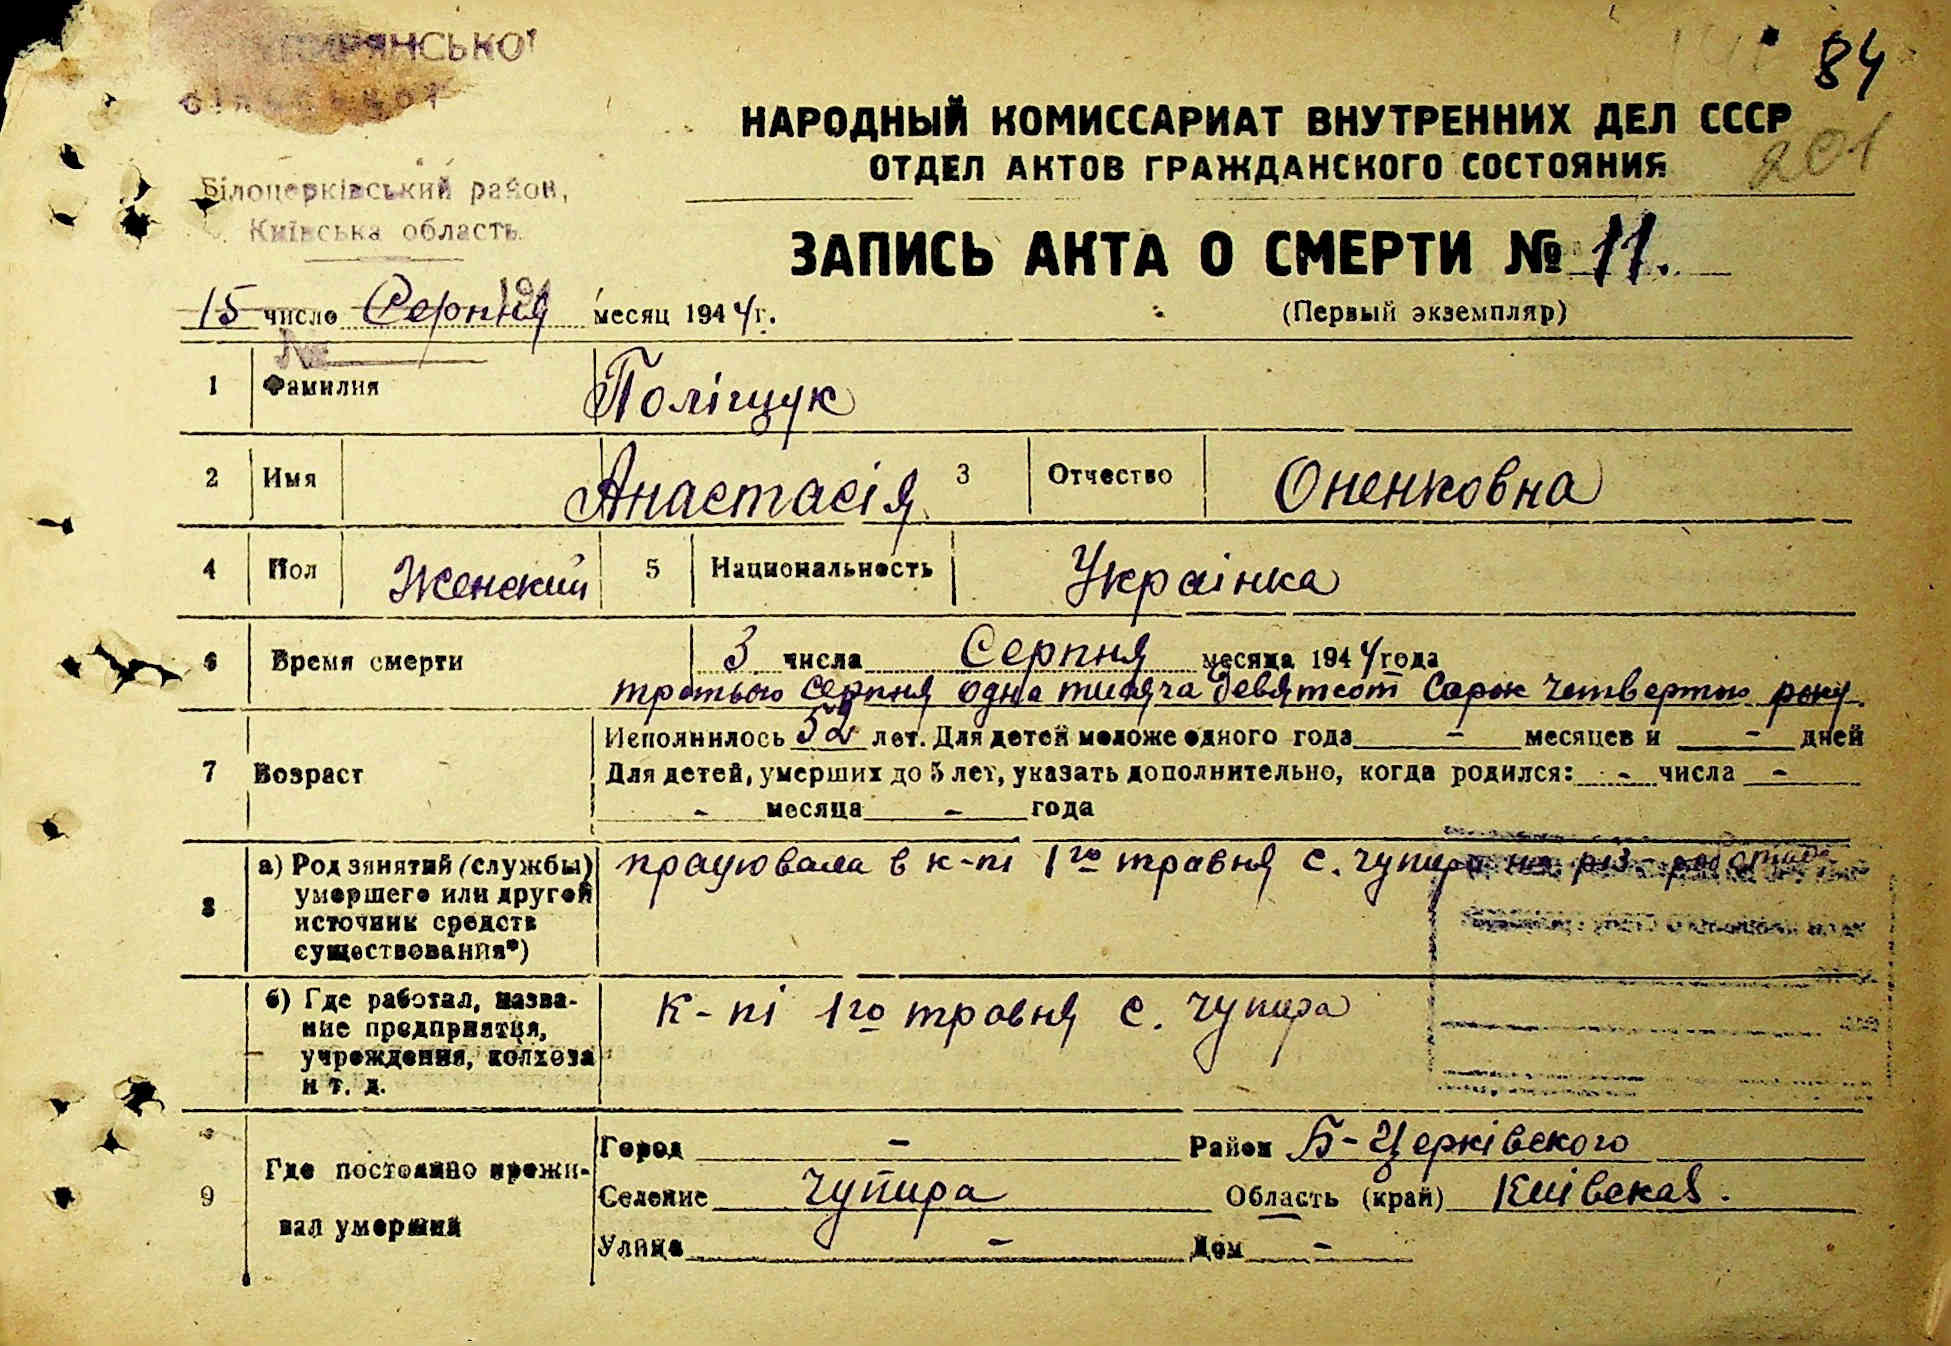 84
НАРОДНЫЙ КОМИССАРИАТ ВНУТРЕННИХ ДЕЛ СССР
201
ОТДЕЛ АКТОВ ГРАЖДАНСКОГО СОСТОЯНИЯ
Білоцерківський район,
Київська область
ЗАПИСЬ АКТА О СМЕРТИ № 11.
15 число Серпня месяц 1944 г.
(Первый экземпляр)
№
1 Фамилия Поліщук
2 Имя Анастасія 3 Отчество Оненковна
4 Пол Женский 5 Национальность Украінка
6 Время смерти 3 числа Серпня месяца 1944 года
третього серпня одна тисяча девятсот сорок четвертого року.
Исполнилось 52 лет. Для детей моложе одного года - месяцев и - дней
7 Возраст Для детей, умерших до 5 лет, указать дополнительно, когда родился: - числа -
- месяца - года
8 а) Род занятий (службы) умершего или другой источник средств существования*) працювала в к-пі 1го травня с. Чупира на різ. роботах
б) Где работал, название предприятия, учреждения, колхоза и т. д. К-пі 1го травня с. Чупира
9 Где постоянно проживал умерший
Город - Район Б-Церківского
Селение Чупира Область (край) Киівская.
Улица - Дом -